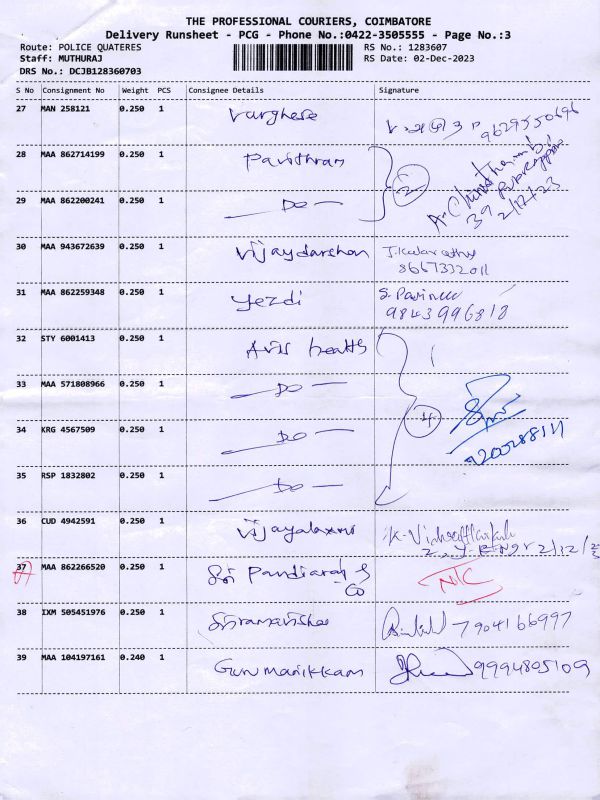 THE PROFESSIONAL COURIERS, COIMBATORE
Delivery Runsheet - PCG - Phone No.:0422-3505555 - Page No.:3
Route: POLICE QUATERES RS No.: 1283607
Staff: MUTHURAJ RS Date: 02-Dec-2023
DRS No.: DCJB128360703
S No Consignment No Weight PCS Consignee Details Signature
27 MAN 258121 0.250 1 Varghese 9629550696
28 MAA 862714199 0.250 1 Pavithran 2
39
2/12/23
29 MAA 862200241 0.250 1 — Do —
30 MAA 943672639 0.250 1 Vijaydarshan
8667332011
31 MAA 862259348 0.250 1 Yezdi
9843996818
32 STY 6001413 0.250 1 health
33 MAA 571808966 0.250 1 — Do —
34 KRG 4567509 0.250 1 — Do —
35 RSP 1832802 0.250 1 — Do —
36 CUD 4942591 0.250 1 Vijayalaxmi
2/12/23
37 MAA 862266520 0.250 1 Sri Pandiaraj &
Co
N/C
38 IXM 505451976 0.250 1 7904166997
39 MAA 104197161 0.240 1 Gunmanikkam 9994805109